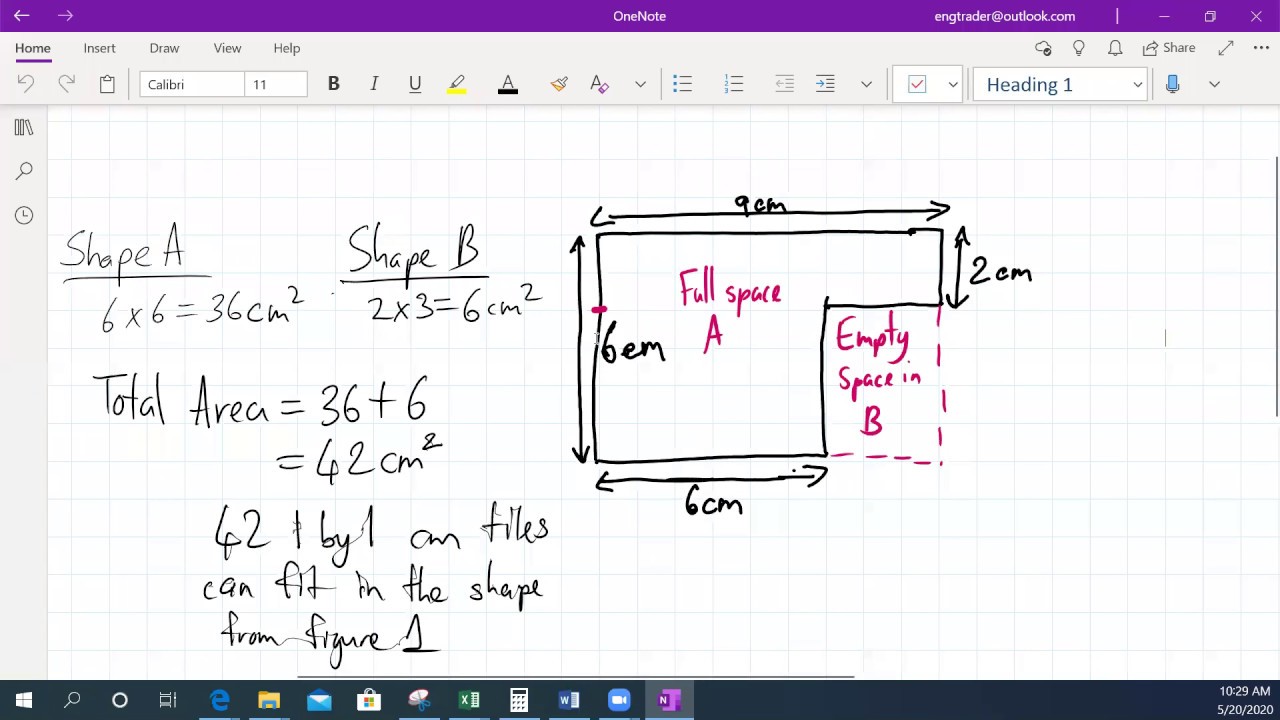 OneNote
engtrader@outlook.com
Home Insert Draw View Help
Share
Calibri 11 B I U A Heading 1
9cm
Shape A Shape B
6 x 6 = 36cm² 2 x 3 = 6cm²
2cm
Full space
A
6cm
Empty
Space in
B
Total Area = 36 + 6
= 42cm²
6cm
42 1 by 1 cm tiles
can fit in the shape
from figure 1
10:29 AM
5/20/2020